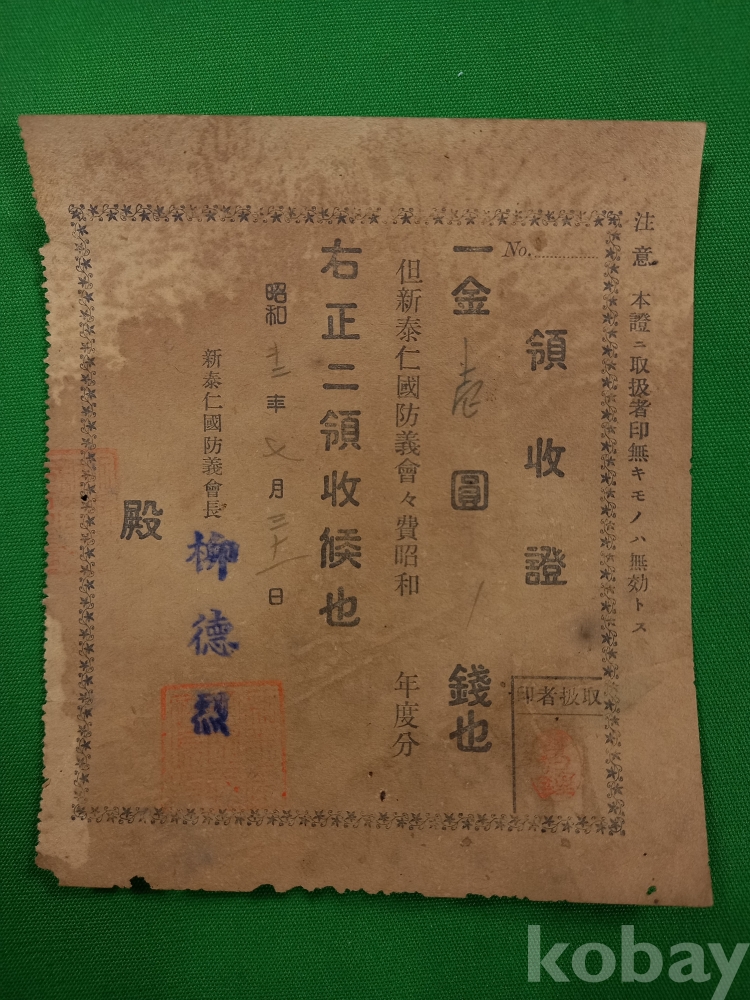 注意 本證ニ取扱者印無キモノハ無効トス
No.
領收證
取扱者印
一金 壱 圓 錢也
但新泰仁國防義會々費昭和 年度分
右正ニ領收候也
昭和 十二 年 七 月 三十一 日
新泰仁國防義會長
柳德烈
殿
kobay